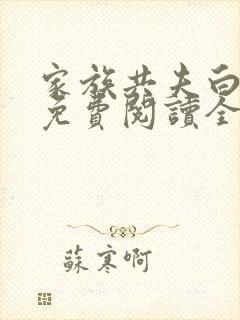 家族共夫白
免費閱讀全
蘇寒啊